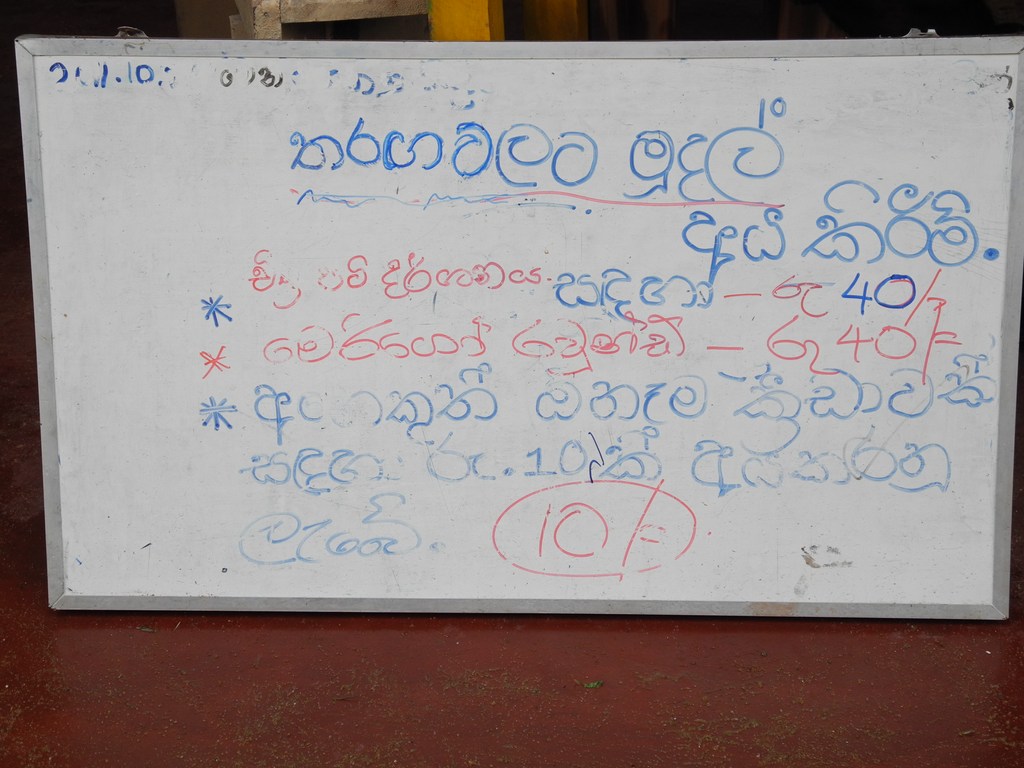 10
තරඟවලට මුදල්
අය කිරීම්.
* චිත්‍රපටි දර්ශනය සඳහා – රු 40/=
* මෙරිගෝ රවුන්ඩ් – රු 40/=
* අනෙකුත් ඔනෑම ක්‍රීඩාවක්
සඳහා රු. 10/ක් අයකරනු
ලැබේ.
10/=